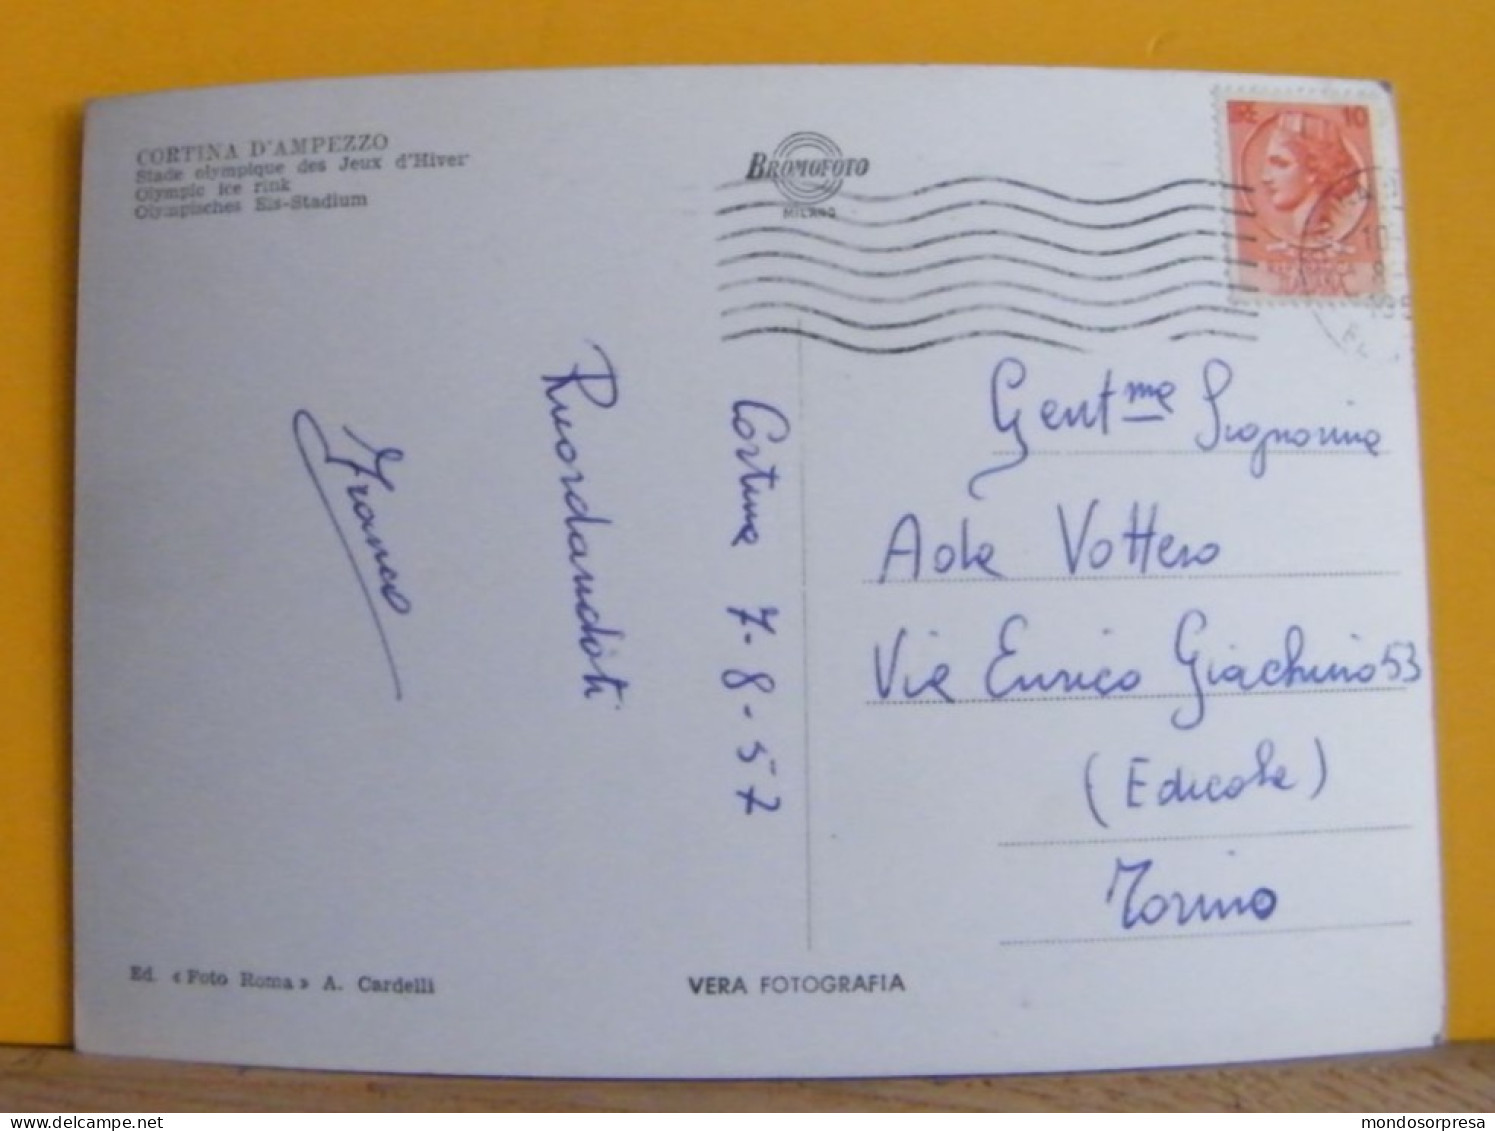 CORTINA D'AMPEZZO
Stade olympique des Jeux d'Hiver
Olympic ice rink
Olympisches Eis-Stadium
BROMOFOTO
MILANO
LIRE 10
Cortina 7-8-57
Ricordandoti
Franco
Gent.me Signorina
Ada Vottero
Via Enrico Giachino 53
(Edicola)
Torino
Ed. « Foto Roma » A. Cardelli
VERA FOTOGRAFIA
delcampe.net
mondosorpresa